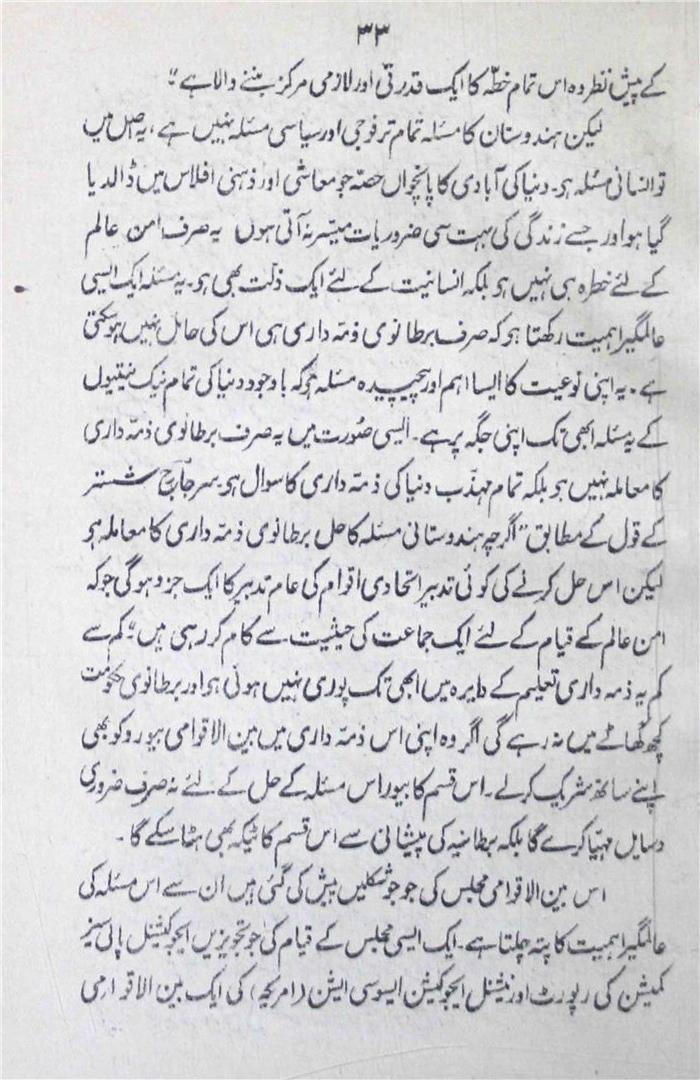 ۳۳
کے پیش نظر وہ اس تمام خطّہ کا ایک قدرتی اور لازمی مرکز بننے والا ہے“
لیکن ہندوستان کا مسئلہ تمام تر فوجی اور سیاسی مسئلہ نہیں ہے، یہ اصل میں
تو انسانی مسئلہ ہو۔ دنیا کی آبادی کا پانچواں حصّہ جو معاشی اور ذہنی افلاس میں ڈالدیا
گیا ہو اور جسے زندگی کی بہت سی ضروریات میسر نہ آتی ہوں یہ صرف امن عالم
کے لئے خطرہ ہی نہیں ہو بلکہ انسانیت کے لئے ایک ذلّت بھی ہو۔ یہ مسئلہ ایک ایسی
عالمگیر اہمیت رکھتا ہو کہ صرف برطانوی ذمّہ داری ہی اس کی حامل نہیں ہوسکتی
ہے۔ یہ اپنی نوعیت کا ایسا اہم اور پیچیدہ مسئلہ ہو کہ باوجود دنیا کی تمام نیک نیتیوں
کے یہ مسئلہ ابھی تک اپنی جگہ پر ہے۔ الیسی صُورت میں یہ صرف برطانوی ذمّہ داری
کا معاملہ نہیں ہو بلکہ تمام مہذّب دنیا کی ذمّہ داری کا سوال ہو۔ سر جارج شسٹر
کے قول کے مطابق ”اگرچہ ہندوستانی مسئلہ کا حل برطانوی ذمّہ داری کا معاملہ ہو
لیکن اس حل کرنے کی کوئی تدبیر اتحادی اقوام کی عام تدبیر کا ایک جزو ہوگی جو کہ
امن عالم کے قیام کے لئے ایک جماعت کی حیثیت سے کام کر رہی ہیں“ کم سے
کم یہ ذمہ داری تعلیم کے دایرہ میں ابھی تک پوری نہیں ہوئی ہو اور برطانوی حکومت
کچھ گھاٹے میں نہ رہے گی اگر وہ اپنی اس ذمّہ داری میں بین الاقوامی بیورو کو بھی
اپنے ساتھ شریک کرلے۔ اس قسم کا بیورا اس مسئلہ کے حل کے لئے نہ صرف ضروری
وسایل مہیّا کرے گا بلکہ برطانیہ کی پیشانی سے اس قسم کا ٹیکہ بھی ہٹا سکے گا۔
اس بین الاقوامی مجلس کی جو جو شکلیں پیش کی گئی ہیں ان سے اس مسئلہ کی
عالمگیر اہمیت کا پتہ چلتا ہے۔ ایک ایسی مجلس کے قیام کی جو تجویزیں ایجوکیشنل پالی سیز
کمیشن کی رپورٹ اور نیشنل ایجوکیشن ایسوسی ایشن (امریکہ) کی ایک بین الاقوامی